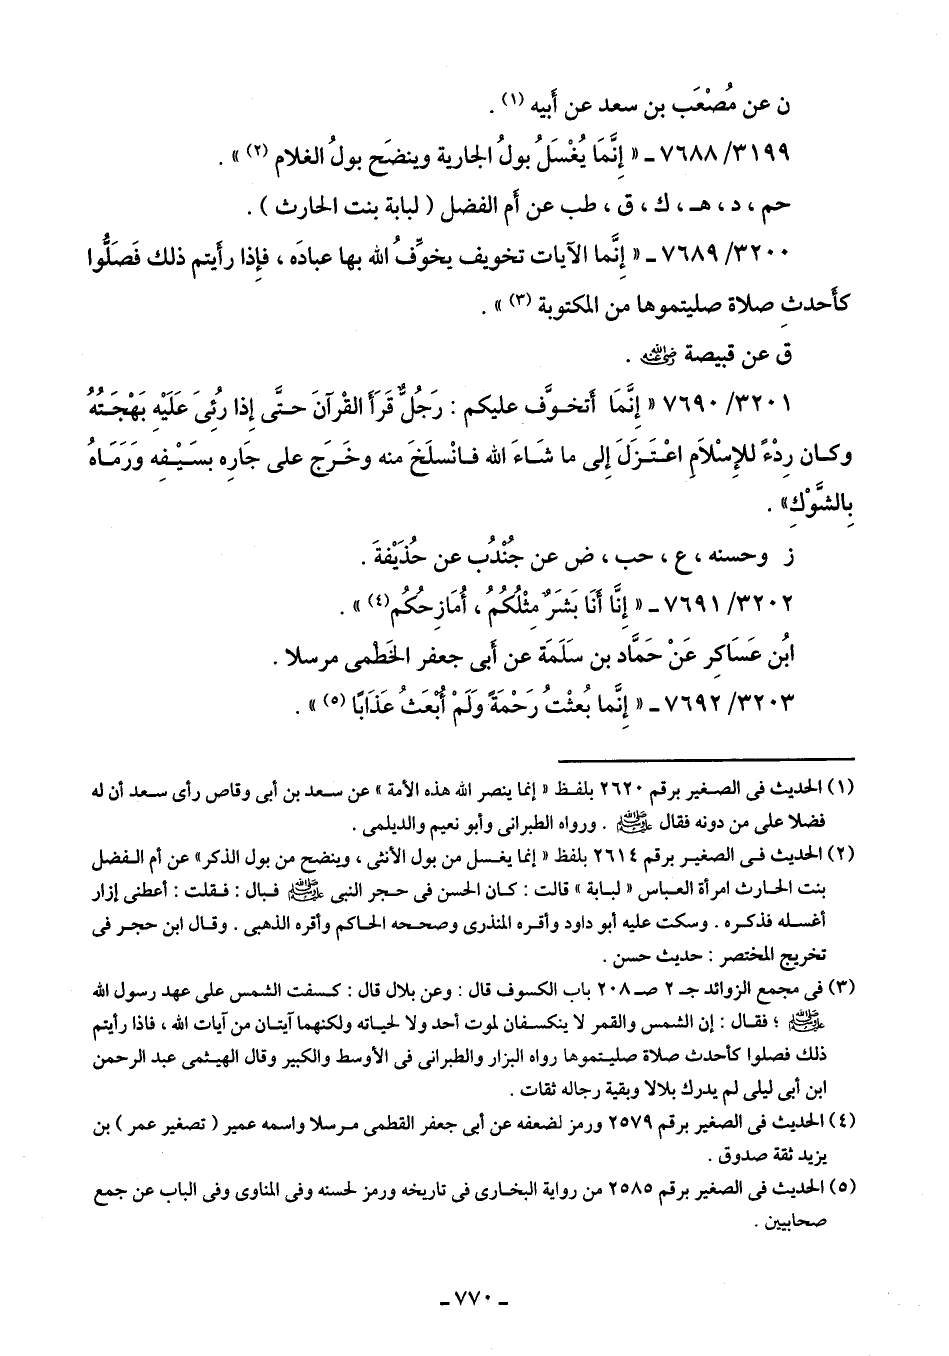 ن عن مُصْعَب بن سعد عن أَبيه (١) .
٣١٩٩/ ٧٦٨٨ ـ « إِنَّمَا يُغْسَلُ بولُ الجارية وينضَح بولُ الغلام (٢) » .
حم ، د ، هـ ، ك ، ق ، طب عن أم الفضل ( لبابة بنت الحارث ) .
٣٢٠٠/ ٧٦٨٩ ـ « إِنَّما الآيات تخويف يخوِّفُ الله بها عبادَه ، فإِذا رأَيتم ذلك فَصَلُّوا
كأَحدثِ صلاة صليتموها من المكتوبة (٣) » .
ق عن قبيصة رضي الله عنه .
٣٢٠١/ ٧٦٩٠ « إِنَّمَا أَتخوَّف عليكم : رَجُلٌ قَرَأَ القْرآنَ حتَّى إِذا رُئِىَ عَلَيْهِ بَهْجَتُهُ
وكان رِدْءً للإِسْلاَمِ اعْتَزَلَ إِلى ما شَاءَ الله فانْسلَخَ منه وخَرَج على جَارِه بسَيْفِه وَرَمَاهُ
بِالشَّوْكِ» .
ز وحسنه ، ع ، حب ، ض عن جُنْدُب عن حُذَيْفةَ .
٣٢٠٢/ ٧٦٩١ ـ « إِنَّا أَنَا بَشَرٌ مِثْلُكُمُ ، أُمَازِحُكُم (٤) » .
ابُن عَسَاكِر عَنْ حَمَّاد بن سَلَمَة عن أَبى جعفر الخَطْمى مرسلا .
٣٢٠٣/ ٧٦٩٢ ـ « إِنَّما بُعثْتُ رَحْمَةً وَلَمْ أُبْعَثُ عَذَابًا (٥) » .
(١) الحديث فى الصغير برقم ٢٦٢٠ بلفظ « إنما ينصر الله هذه الأمة » عن سعد بن أبى وقاص رأى سعد أن له
فضلا على من دونه فقال ﷺ . ورواه الطبرانى وأبو نعيم والديلمى .
(٢) الحديث فى الصغير برقم ٢٦١٤ بلفظ « إنما يغسل من بول الأنثى ، وينضح من بول الذكر» عن أم الفضل
بنت الحارث امرأة العباس « لبابة » قالت : كان الحسن فى حجر النبى ﷺ فبال : فقلت : أعطنى إزار
أغسله فذكره . وسكت عليه أبو داود وأقره المنذرى وصححه الحاكم وأقره الذهبى . وقال ابن حجر فى
تخريج المختصر : حديث حسن .
(٣) فى مجمع الزوائد جـ ٢ صـ ٢٠٨ باب الكسوف قال : وعن بلال قال : كسفت الشمس على عهد رسول الله
ﷺ ؛ فقال : إن الشمس والقمر لا ينكسفان لموت أحد ولا لحياته ولكنهما آيتان من آيات الله ، فاذا رأيتم
ذلك فصلوا كأحدث صلاة صليتموها رواه البزار والطبرانى فى الأوسط والكبير وقال الهيثمى عبد الرحمن
ابن أبى ليلى لم يدرك بلالا وبقية رجاله ثقات .
(٤) الحديث فى الصغير برقم ٢٥٧٩ ورمز لضعفه عن أبى جعفر القطمى مرسلا واسمه عمير ( تصغير عمر ) بن
يزيد ثقة صدوق .
(٥) الحديث فى الصغير برقم ٢٥٨٥ من رواية البخارى فى تاريخه ورمز لحسنه وفى المناوى وفى الباب عن جمع
صحابيين .
ـ ٧٧٠ ـ